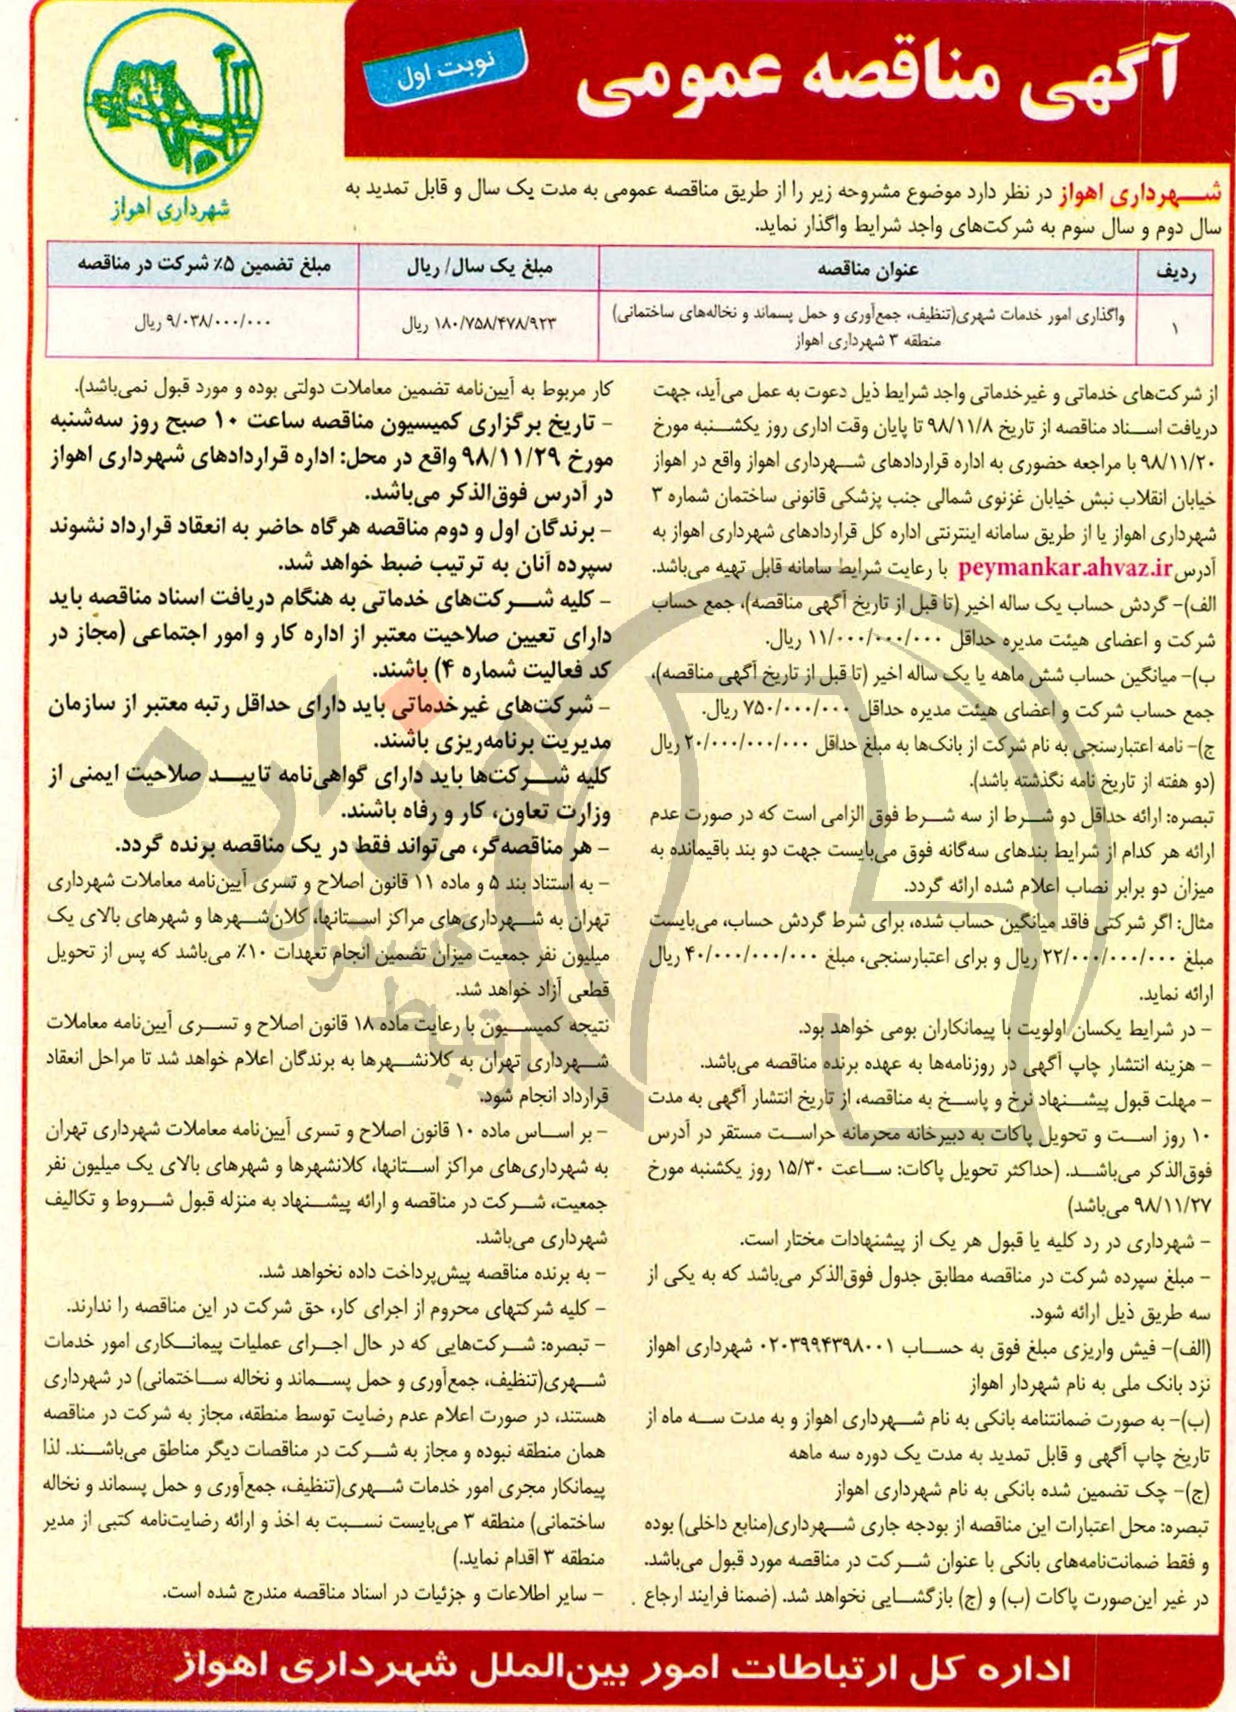 آگهی مناقصه عمومی
نوبت اول
شهرداری اهواز
شهرداری اهواز در نظر دارد موضوع مشروحه زیر را از طریق مناقصه عمومی به مدت یک سال و قابل تمدید به
سال دوم و سال سوم به شرکت‌های واجد شرایط واگذار نماید.
ردیف عنوان مناقصه مبلغ یک سال/ ریال مبلغ تضمین ۵٪ شرکت در مناقصه
۱ واگذاری امور خدمات شهری(تنظیف، جمع‌آوری و حمل پسماند و نخاله‌های ساختمانی) ۱۸۰/۷۵۸/۴۷۸/۹۲۳ ریال ۹/۰۳۸/۰۰۰/۰۰۰ ریال
منطقه ۳ شهرداری اهواز
از شرکت‌های خدماتی و غیرخدماتی واجد شرایط ذیل دعوت به عمل می‌آید، جهت
دریافت اسناد مناقصه از تاریخ ۹۸/۱۱/۸ تا پایان وقت اداری روز یکشنبه مورخ
۹۸/۱۱/۲۰ با مراجعه حضوری به اداره قراردادهای شهرداری اهواز واقع در اهواز
خیابان انقلاب نبش خیابان غزنوی شمالی جنب پزشکی قانونی ساختمان شماره ۳
شهرداری اهواز یا از طریق سامانه اینترنتی اداره کل قراردادهای شهرداری اهواز به
آدرس peymankar.ahvaz.ir با رعایت شرایط سامانه قابل تهیه می‌باشد.
الف)- گردش حساب یک ساله اخیر (تا قبل از تاریخ آگهی مناقصه)، جمع حساب
شرکت و اعضای هیئت مدیره حداقل ۱۱/۰۰۰/۰۰۰/۰۰۰ ریال.
ب)- میانگین حساب شش ماهه یا یک ساله اخیر (تا قبل از تاریخ آگهی مناقصه)،
جمع حساب شرکت و اعضای هیئت مدیره حداقل ۷۵۰/۰۰۰/۰۰۰ ریال.
ج)- نامه اعتبارسنجی به نام شرکت از بانک‌ها به مبلغ حداقل ۲۰/۰۰۰/۰۰۰/۰۰۰ ریال
(دو هفته از تاریخ نامه نگذشته باشد).
تبصره: ارائه حداقل دو شرط از سه شرط فوق الزامی است که در صورت عدم
ارائه هر کدام از شرایط بندهای سه‌گانه فوق می‌بایست جهت دو بند باقیمانده به
میزان دو برابر نصاب اعلام شده ارائه گردد.
مثال: اگر شرکتی فاقد میانگین حساب شده، برای شرط گردش حساب، می‌بایست
مبلغ ۲۲/۰۰۰/۰۰۰/۰۰۰ ریال و برای اعتبارسنجی، مبلغ ۴۰/۰۰۰/۰۰۰/۰۰۰ ریال
ارائه نماید.
- در شرایط یکسان اولویت با پیمانکاران بومی خواهد بود.
- هزینه انتشار چاپ آگهی در روزنامه‌ها به عهده برنده مناقصه می‌باشد.
- مهلت قبول پیشنهاد نرخ و پاسخ به مناقصه، از تاریخ انتشار آگهی به مدت
۱۰ روز است و تحویل پاکات به دبیرخانه محرمانه حراست مستقر در آدرس
فوق‌الذکر می‌باشد. (حداکثر تحویل پاکات: ساعت ۱۵/۳۰ روز یکشنبه مورخ
۹۸/۱۱/۲۷ می‌باشد)
- شهرداری در رد کلیه یا قبول هر یک از پیشنهادات مختار است.
- مبلغ سپرده شرکت در مناقصه مطابق جدول فوق‌الذکر می‌باشد که به یکی از
سه طریق ذیل ارائه شود.
(الف)- فیش واریزی مبلغ فوق به حساب ۰۲۰۳۹۹۴۳۹۸۰۰۱ شهرداری اهواز
نزد بانک ملی به نام شهردار اهواز
(ب)- به صورت ضمانتنامه بانکی به نام شهرداری اهواز و به مدت سه ماه از
تاریخ چاپ آگهی و قابل تمدید به مدت یک دوره سه ماهه
(ج)- چک تضمین شده بانکی به نام شهرداری اهواز
تبصره: محل اعتبارات این مناقصه از بودجه جاری شهرداری(منابع داخلی) بوده
و فقط ضمانت‌نامه‌های بانکی با عنوان شرکت در مناقصه مورد قبول می‌باشد.
در غیر این‌صورت پاکات (ب) و (ج) بازگشایی نخواهد شد. (ضمنا فرایند ارجاع
کار مربوط به آیین‌نامه تضمین معاملات دولتی بوده و مورد قبول نمی‌باشد).
- تاریخ برگزاری کمیسیون مناقصه ساعت ۱۰ صبح روز سه‌شنبه
مورخ ۹۸/۱۱/۲۹ واقع در محل: اداره قراردادهای شهرداری اهواز
در آدرس فوق‌الذکر می‌باشد.
- برندگان اول و دوم مناقصه هرگاه حاضر به انعقاد قرارداد نشوند
سپرده آنان به ترتیب ضبط خواهد شد.
- کلیه شرکت‌های خدماتی به هنگام دریافت اسناد مناقصه باید
دارای تعیین صلاحیت معتبر از اداره کار و امور اجتماعی (مجاز در
کد فعالیت شماره ۴) باشند.
- شرکت‌های غیرخدماتی باید دارای حداقل رتبه معتبر از سازمان
مدیریت برنامه‌ریزی باشند.
کلیه شرکت‌ها باید دارای گواهی‌نامه تایید صلاحیت ایمنی از
وزارت تعاون، کار و رفاه باشند.
- هر مناقصه‌گر، می‌تواند فقط در یک مناقصه برنده گردد.
- به استناد بند ۵ و ماده ۱۱ قانون اصلاح و تسری آیین‌نامه معاملات شهرداری
تهران به شهرداری‌های مراکز استانها، کلان‌شهرها و شهرهای بالای یک
میلیون نفر جمعیت میزان تضمین انجام تعهدات ۱۰٪ می‌باشد که پس از تحویل
قطعی آزاد خواهد شد.
نتیجه کمیسیون با رعایت ماده ۱۸ قانون اصلاح و تسری آیین‌نامه معاملات
شهرداری تهران به کلانشهرها به برندگان اعلام خواهد شد تا مراحل انعقاد
قرارداد انجام شود.
- بر اساس ماده ۱۰ قانون اصلاح و تسری آیین‌نامه معاملات شهرداری تهران
به شهرداری‌های مراکز استانها، کلانشهرها و شهرهای بالای یک میلیون نفر
جمعیت، شرکت در مناقصه و ارائه پیشنهاد به منزله قبول شروط و تکالیف
شهرداری می‌باشد.
- به برنده مناقصه پیش‌پرداخت داده نخواهد شد.
- کلیه شرکتهای محروم از اجرای کار، حق شرکت در این مناقصه را ندارند.
- تبصره: شرکت‌هایی که در حال اجرای عملیات پیمانکاری امور خدمات
شهری(تنظیف، جمع‌آوری و حمل پسماند و نخاله ساختمانی) در شهرداری
هستند، در صورت اعلام عدم رضایت توسط منطقه، مجاز به شرکت در مناقصه
همان منطقه نبوده و مجاز به شرکت در مناقصات دیگر مناطق می‌باشند. لذا
پیمانکار مجری امور خدمات شهری(تنظیف، جمع‌آوری و حمل پسماند و نخاله
ساختمانی) منطقه ۳ می‌بایست نسبت به اخذ و ارائه رضایت‌نامه کتبی از مدیر
منطقه ۳ اقدام نماید.)
- سایر اطلاعات و جزئیات در اسناد مناقصه مندرج شده است.
اداره کل ارتباطات امور بین‌الملل شهرداری اهواز